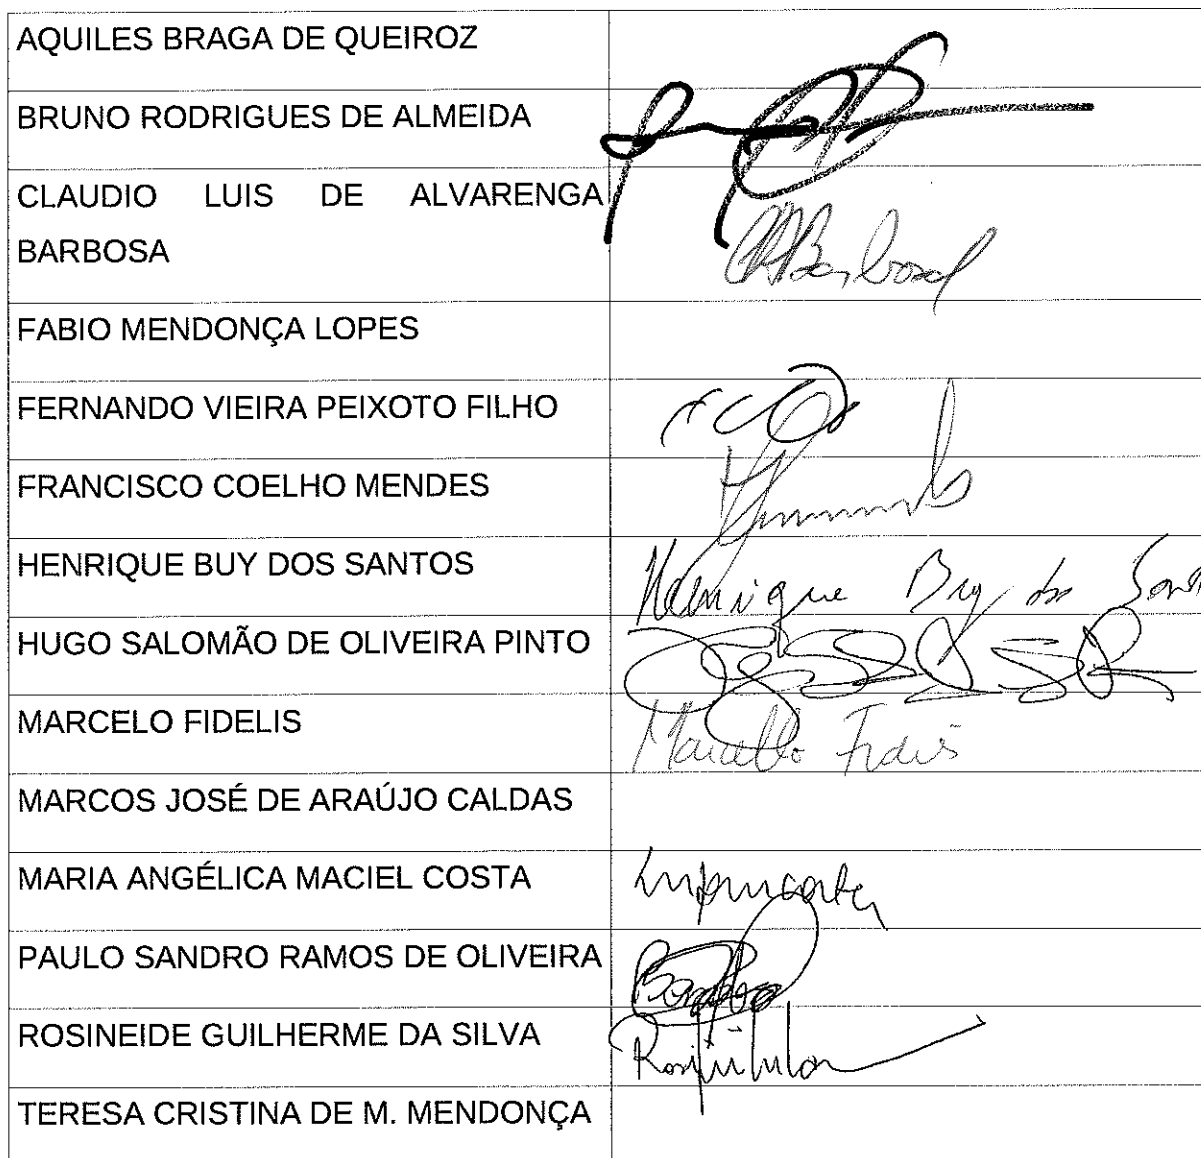 AQUILES BRAGA DE QUEIROZ
BRUNO RODRIGUES DE ALMEIDA
CLAUDIO LUIS DE ALVARENGA
BARBOSA
Barbosa
FABIO MENDONÇA LOPES
FERNANDO VIEIRA PEIXOTO FILHO
FRANCISCO COELHO MENDES
HENRIQUE BUY DOS SANTOS
Henrique Buy dos Sant
HUGO SALOMÃO DE OLIVEIRA PINTO
MARCELO FIDELIS
Marcello Fidelis
MARCOS JOSÉ DE ARAÚJO CALDAS
MARIA ANGÉLICA MACIEL COSTA
PAULO SANDRO RAMOS DE OLIVEIRA
ROSINEIDE GUILHERME DA SILVA
TERESA CRISTINA DE M. MENDONÇA